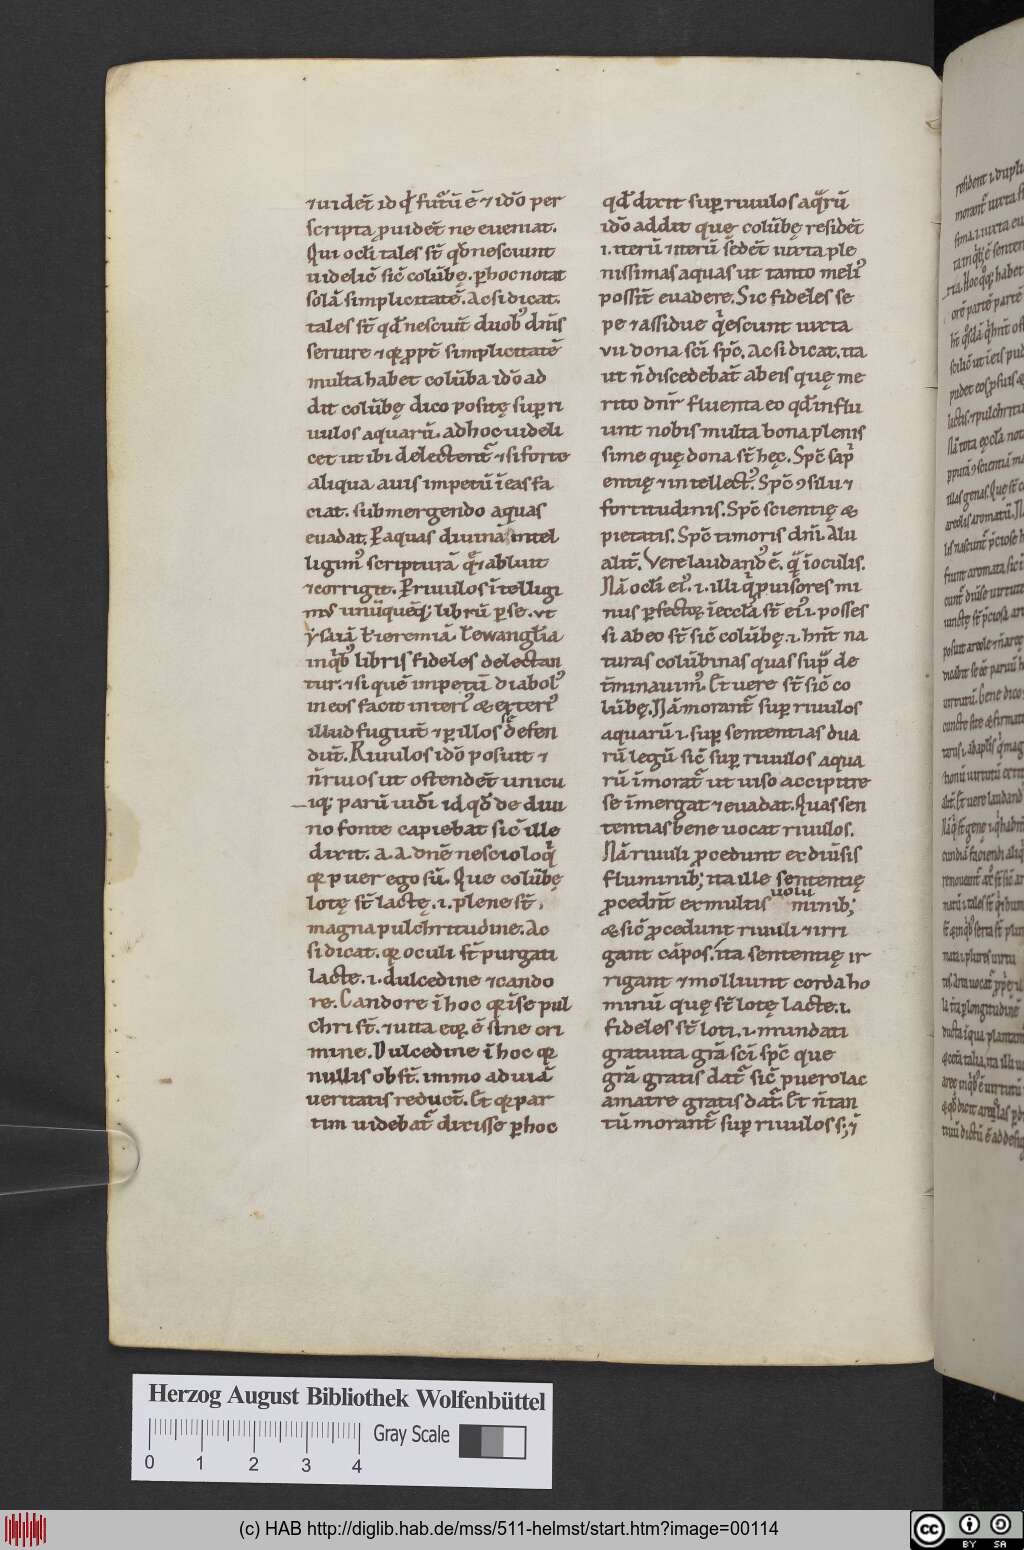 ⁊ uidet̄ id qͥ futuᷣū ē ⁊ idō per
scripta ꝓuidet̄ ne eueniat.
Qui ocl̄i tales st̄ qd̄ nesciunt
uidelic̄ sic̄ colūbę. ꝑ hoc notat
solā simplicitatē. Ac si dicat.
tales st̄ qd̄ nesciunt̄ duobꝰ dn̄is
seruire ⁊ qꝛ ꝓpt̄ simplicitatē
multa habet colūba idō ad
dit colūbę dico positę suꝑ ri
uulos aquarū. ad hoc uideli
cet ut ibi delectent̄ ⁊ si forte
aliqua auis impetū ī eas fa
ciat. submergendo aquas
euadat. Ꝑ aquas diuinā intel
ligimꝰ scripturā q̄ ⁊ abluit
⁊ corrigit. Ꝑ riuulos ītelligi
mꝰ unūquēq; librū ꝑ se. ut
ysaiā ł ieremiā. ł ewangl̄ia
in qͥbꝰ libris fideles delectan
tur. ⁊ si quē impetū diabolꝰ
in eos facit interiꝰ & exteriꝰ
illud fugiūt ⁊ ꝑ illos se defen
dūt. Riuulos idō posuit ⁊
n̄ riuos ut ostendet̄ unicu
iq; parū uidi id qd̄ de diui
no fonte capiebat sic̄ ille
dixit. a. a. dn̄e nescio loqͥ
qꝛ puer ego sū. Que colūbę
lotę st̄ lactę .i. plene st̄
magna pulchritudine. Ac
si dicat. qꝛ oculi st̄ purgati
lacte .i. dulcedine ⁊ cando
re. Candore ī hoc qꝛ ipse pul
chri st̄. ⁊ uita eoꝝ ē sine cri
mine. Dulcedine ī hoc qꝛ
nullis obst̄. immo ad uiā
ueritatis reduct̄. Et qꝛ par
tim uidebat̄ dixisse ꝑ hoc
qd̄ dixit suꝑ riuulos aqᷓrū
idō addit quę colūbę resident̄
.i. iterū ⁊ iterū sedet̄ iuxta ple
nissimas aquas ut tanto meliꝰ
possit̄ euadere. Sic fideles se
pe ⁊ assidue qͥescunt iuxta
vii dona sci spc̄. Ac si dicat. ita
ut n̄ discedebat̄ ab eis quę me
rito dn̄r fluenta eo qd̄ influ
unt nobis multa bona plenis
sime quę dona st̄ hęc. Spc̄ sapͥ
entię ⁊ intellectꝰ. Spc̄ ꝯsilii ⁊
fortitudinis. Spc̄ scientię &
pietatis. Spc̄ timoris dn̄i. Alii
alit̄. Vere laudandꝰ ē. qᷓ ī oculis.
Nā ocl̄i eiꝰ .i. illi qͥ ꝓuisores mi
nus ꝑfectoꝝ ī eccl̄a st̄ eiꝰ .i. posses
si ab eo st̄ sic̄ colūbę .i. hn̄t na
turas colūbinas quas supᷓ de
t̄minauimꝰ. Et uere st̄ sic̄ co
lūbę. Nā morant̄ suꝑ riuulos
aquarū .i. suꝑ sententias dua
rū legū sic̄ suꝑ riuulos aqua
rū īmorat̄ ut uiso accipitre
se īmergat ⁊ euadat. Quas sen
tentias bene uocat riuulos.
Nā riuuli ꝓcedunt ex diūsis
fluminib; ita ille sententię
ꝓcedn̄t ex multis uolu minib;
& sic̄ ꝓcedunt riuuli ⁊ irri
gant cāpos. ita sententię ir
rigant ⁊ molliunt corda ho
minū quę st̄ lotę lacte .i.
fideles st̄ loti .i. mundati
gratuita grā sci spc̄ que
grā gratis dat̄ sic̄ puero lac
a matre gratis dat̄. Et n̄ tan
tū morant̄ suꝑ riuulos s; ī
Herzog August Bibliothek Wolfenbüttel
Gray Scale
0 1 2 3 4
(c) HAB http://diglib.hab.de/mss/511-helmst/start.htm?image=00114
cc BY SA